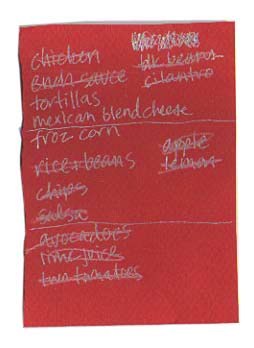 chicken
ench sauce
tortillas
mexican blend cheese
froz corn
rice + beans
chips
salsa
avocadoes
lime juice
two tomatoes
blk beans
cilantro
apple
lemon